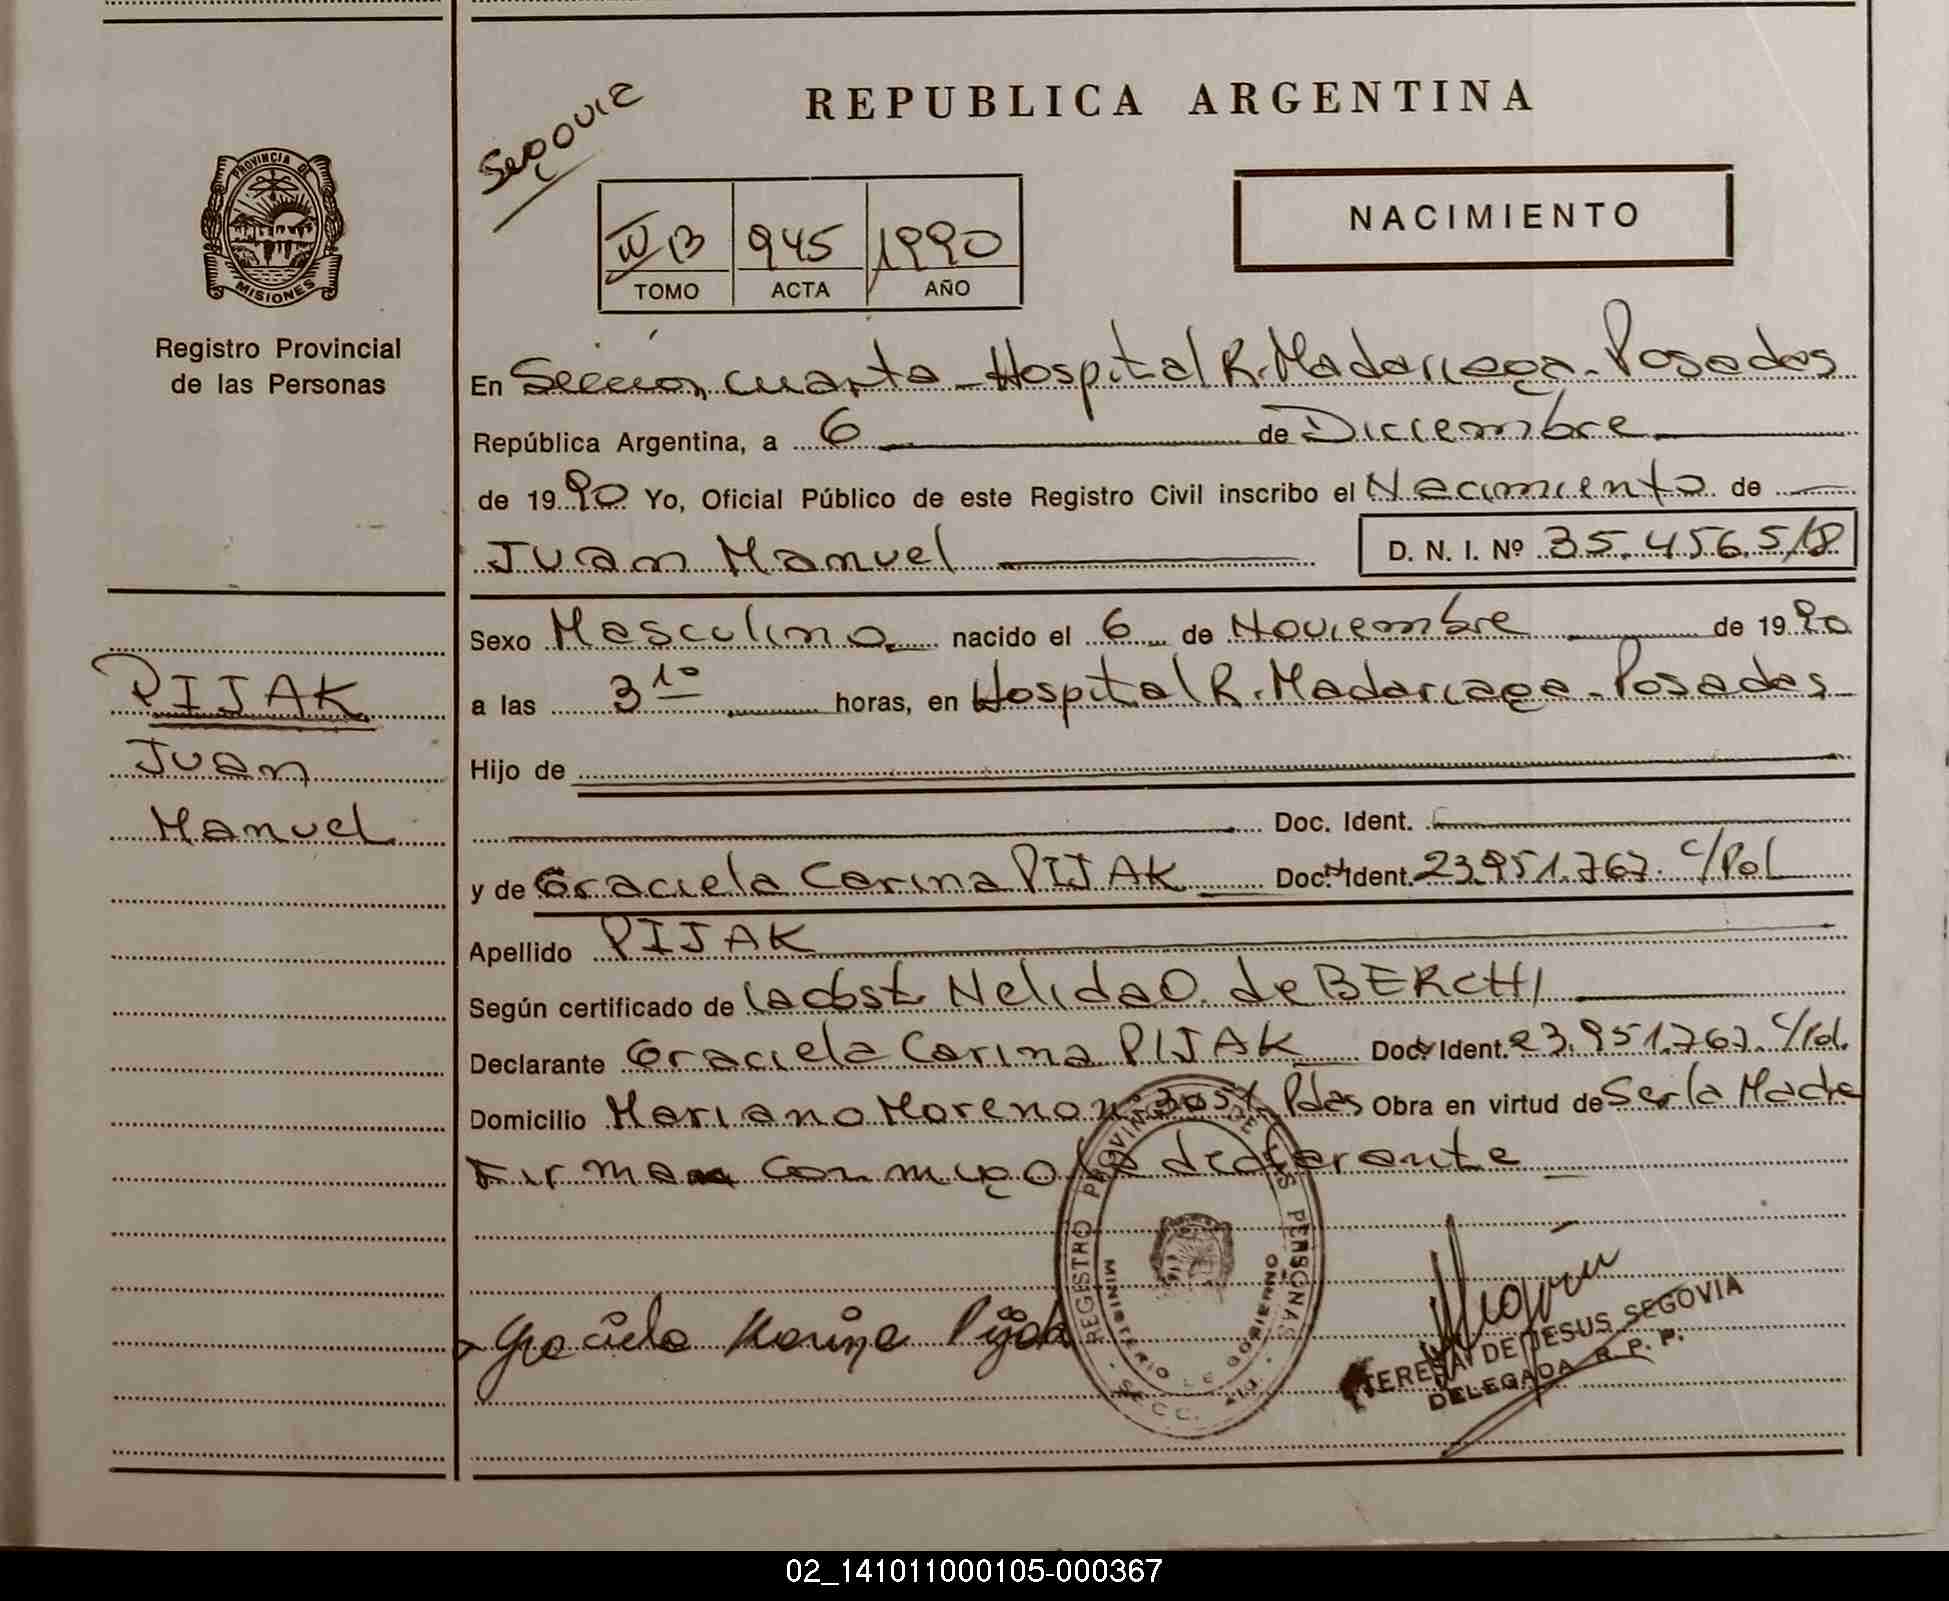 REPUBLICA ARGENTINA
Segovia
PROVINCIA DE MISIONES
Registro Provincial
de las Personas
NACIMIENTO
IV B 945 1990
TOMO ACTA AÑO
En Sección cuarta - Hospital R. Madariaga - Posadas
República Argentina, a 6 de Diciembre
de 1990 Yo, Oficial Público de este Registro Civil inscribo el Nacimiento de
Juan Manuel D. N. I. Nº 35.456.518
Sexo Masculino nacido el 6 de Noviembre de 1990
a las 3 10 horas, en Hospital R. Madariaga - Posadas
PIJAK
Juan
Manuel
Hijo de
Doc. Ident.
y de Graciela Carina PIJAK Doc. Ident. 23.951.767. C/Pol
Apellido PIJAK
Según certificado de la obst. Nelida O. de BERCHI
Declarante Graciela Carina PIJAK Doc. Ident. 23.951.767. C/Pol.
Domicilio Mariano Moreno nº 3051 Pdas Obra en virtud de Ser la Madre
Firma conmigo la declarante
Graciela Karina Pijak
REGISTRO PROVINCIAL DE LAS PERSONAS
MINISTERIO DE GOBIERNO
SECC. 4ta
TERESA DE JESUS SEGOVIA
DELEGADA R. P. P.
02_141011000105-000367